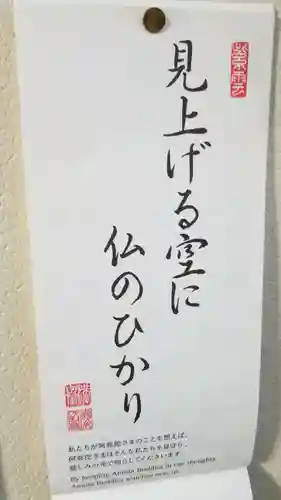 見上げる空に
仏のひかり
私たちが阿弥陀さまのことを想えば、
阿弥陀さまはそんな私たちを見守り、
慈しみの光で照らしてくださいます
By keeping Amida Buddha in our thoughts,
Amida Buddha watches over us,